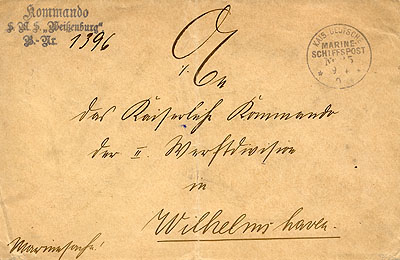 Kommando
S. M. S. „Weißenburg"
B.-Nr. 1396
KAIS. DEUTSCHE
MARINE-
SCHIFFSPOST
An
das Kaiserliche Kommando
der II. Werftdivision
in
Wilhelmshaven.
Marinesache!